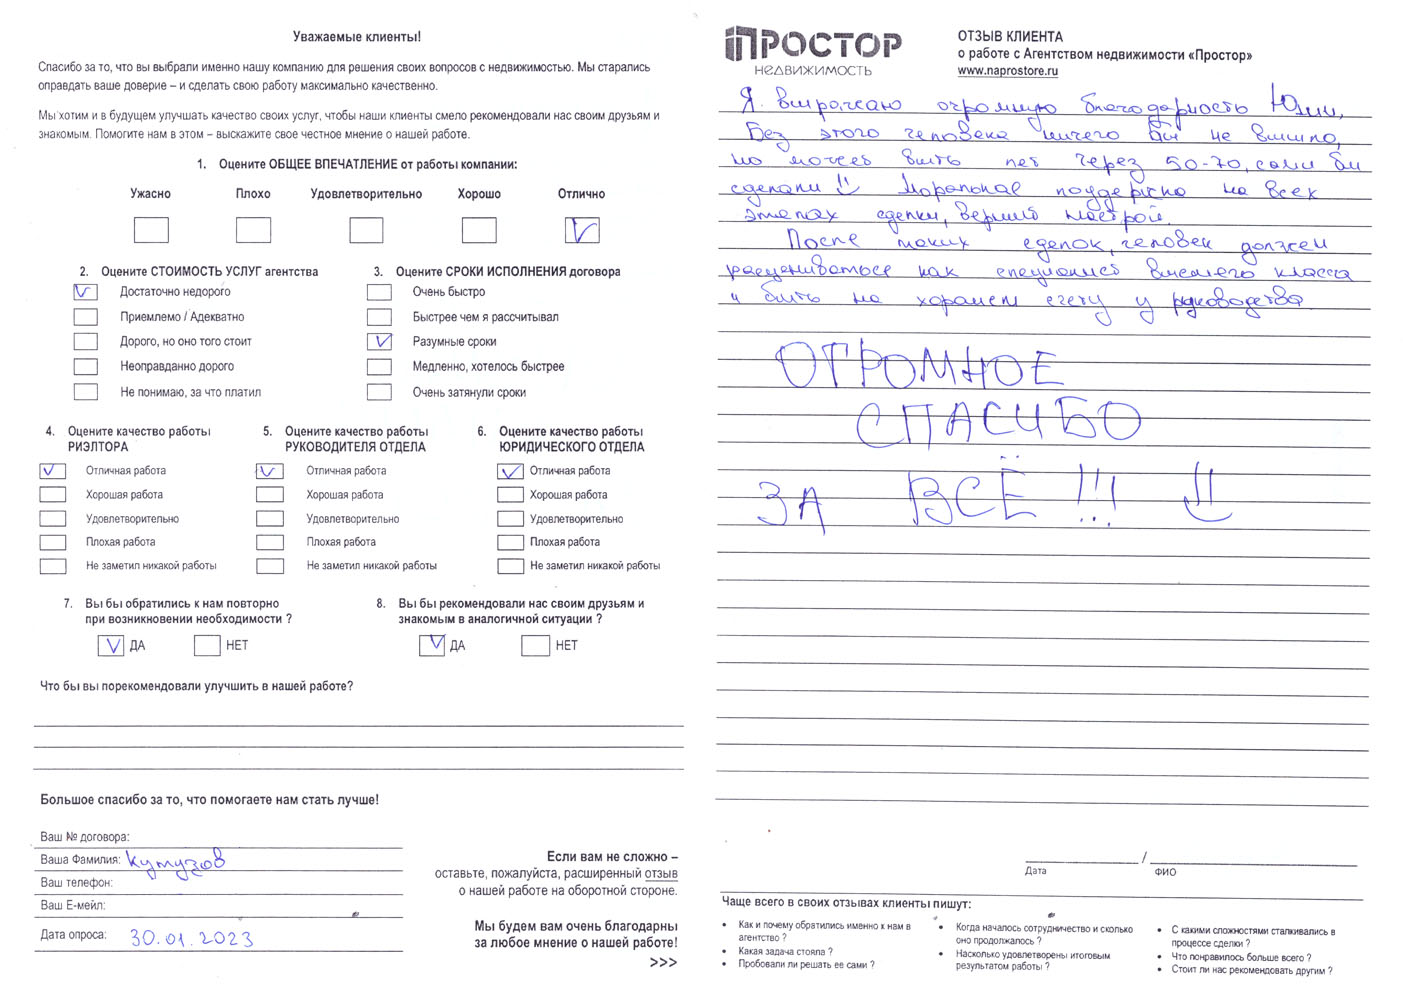 Уважаемые клиенты!
Спасибо за то, что вы выбрали именно нашу компанию для решения своих вопросов с недвижимостью. Мы старались
оправдать ваше доверие – и сделать свою работу максимально качественно.
Мы хотим и в будущем улучшать качество своих услуг, чтобы наши клиенты смело рекомендовали нас своим друзьям и
знакомым. Помогите нам в этом – выскажите свое честное мнение о нашей работе.
1. Оцените ОБЩЕЕ ВПЕЧАТЛЕНИЕ от работы компании:
Ужасно Плохо Удовлетворительно Хорошо Отлично
2. Оцените СТОИМОСТЬ УСЛУГ агентства
Достаточно недорого
Приемлемо / Адекватно
Дорого, но оно того стоит
Неоправданно дорого
Не понимаю, за что платил
3. Оцените СРОКИ ИСПОЛНЕНИЯ договора
Очень быстро
Быстрее чем я рассчитывал
Разумные сроки
Медленно, хотелось быстрее
Очень затянули сроки
4. Оцените качество работы
РИЭЛТОРА
Отличная работа
Хорошая работа
Удовлетворительно
Плохая работа
Не заметил никакой работы
5. Оцените качество работы
РУКОВОДИТЕЛЯ ОТДЕЛА
Отличная работа
Хорошая работа
Удовлетворительно
Плохая работа
Не заметил никакой работы
6. Оцените качество работы
ЮРИДИЧЕСКОГО ОТДЕЛА
Отличная работа
Хорошая работа
Удовлетворительно
Плохая работа
Не заметил никакой работы
7. Вы бы обратились к нам повторно
при возникновении необходимости ?
ДА НЕТ
8. Вы бы рекомендовали нас своим друзьям и
знакомым в аналогичной ситуации ?
ДА НЕТ
Что бы вы порекомендовали улучшить в нашей работе?
Большое спасибо за то, что помогаете нам стать лучше!
Ваш № договора:
Ваша Фамилия: Кутузов
Ваш телефон:
Ваш Е-мейл:
Дата опроса: 30.01.2023
Если вам не сложно –
оставьте, пожалуйста, расширенный отзыв
о нашей работе на оборотной стороне.
Мы будем вам очень благодарны
за любое мнение о нашей работе!
>>>
ПРОСТОР
НЕДВИЖИМОСТЬ
ОТЗЫВ КЛИЕНТА
о работе с Агентством недвижимости «Простор»
www.naprostore.ru
Я выражаю огромную благодарность Юлии,
Без этого человека ничего бы не вышло,
но может быть лет через 50-70, сами бы
сделали Моральная поддержка на всех
этапах сделки, верный настрой.
После таких сделок, человек должен
расцениваться как специалист высшего класса
и быть на хорошем счету у руководства
ОГРОМНОЕ
СПАСИБО
ЗА ВСЁ!!!
/
Дата ФИО
Чаще всего в своих отзывах клиенты пишут:
• Как и почему обратились именно к нам в
агентство ?
• Какая задача стояла ?
• Пробовали ли решать ее сами ?
• Когда началось сотрудничество и сколько
оно продолжалось ?
• Насколько удовлетворены итоговым
результатом работы ?
• С какими сложностями сталкивались в
процессе сделки ?
• Что понравилось больше всего ?
• Стоит ли нас рекомендовать другим ?